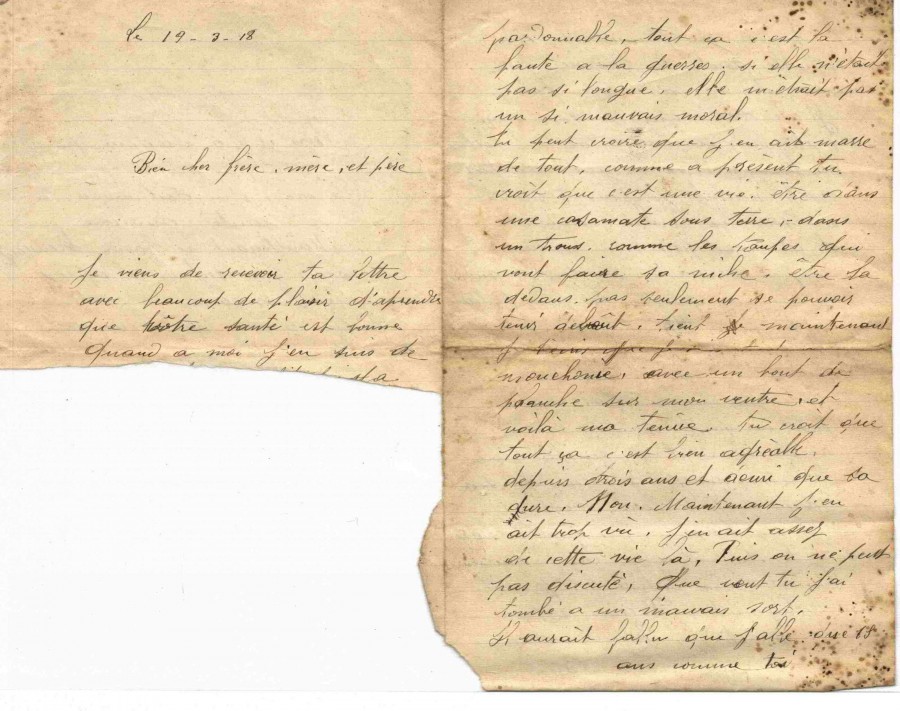 Le 19-3-18
Bien cher frère, mère, et père
Je viens de recevoir ta lettre
avec beaucoup de plaisir d'aprendre
que vôtre santé est bonne
Quand a moi j'en suis de
pardonnable, tout ça c'est la
faute a la guerres. si elle n'était
pas si longue, elle m'était pas
un si mauvais moral.
Tu peut croire que j'en ait marre
de tout, comme a présent tu
croit que c'est une vie. être dans
une casamate sous terre, dans
un trous. comme les taupes qui
vont faire sa niche. être la
dedans. pas seulement se pouvoir
tenir debout, tient je maintenant
avec un bout de
planche sur mon ventre, et
voilà ma tenue. Tu croit que
tout ça c'est bien agréable.
depuis trois ans et demi que sa
dure. Non. Maintenant j'en
ait trop vù. J'en ait assez
de cette vie là, Puis on ne peut
pas discuté, Que veut tu j'ai
tombé a un mauvais sort.
Il aurait fallu que j'allé que 18
ans comme toi